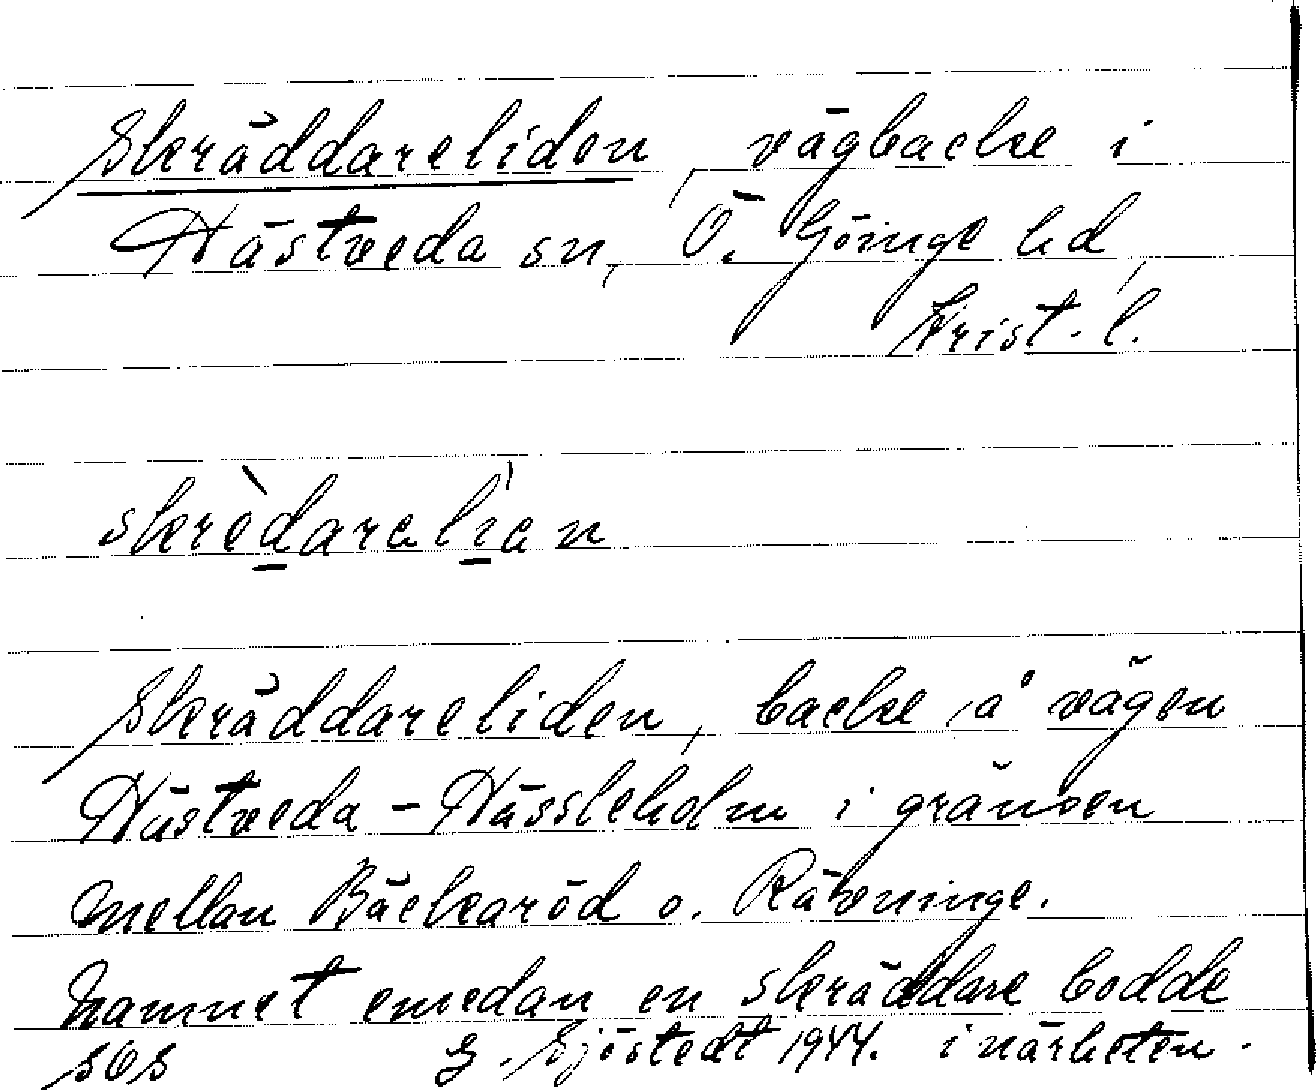 Skräddareliden, vägbacke i
Hästveda sn, Ö. Göinge hd,
Krist. l.
skrèdarelían
Skräddareliden, backe å vägen
Hästveda - Hässleholm i gränsen
mellan Bäckaröd o. Rävninge.
Namnet emedan en skräddare bodde
i närheten.
SOS G. Sjöstedt 1944.